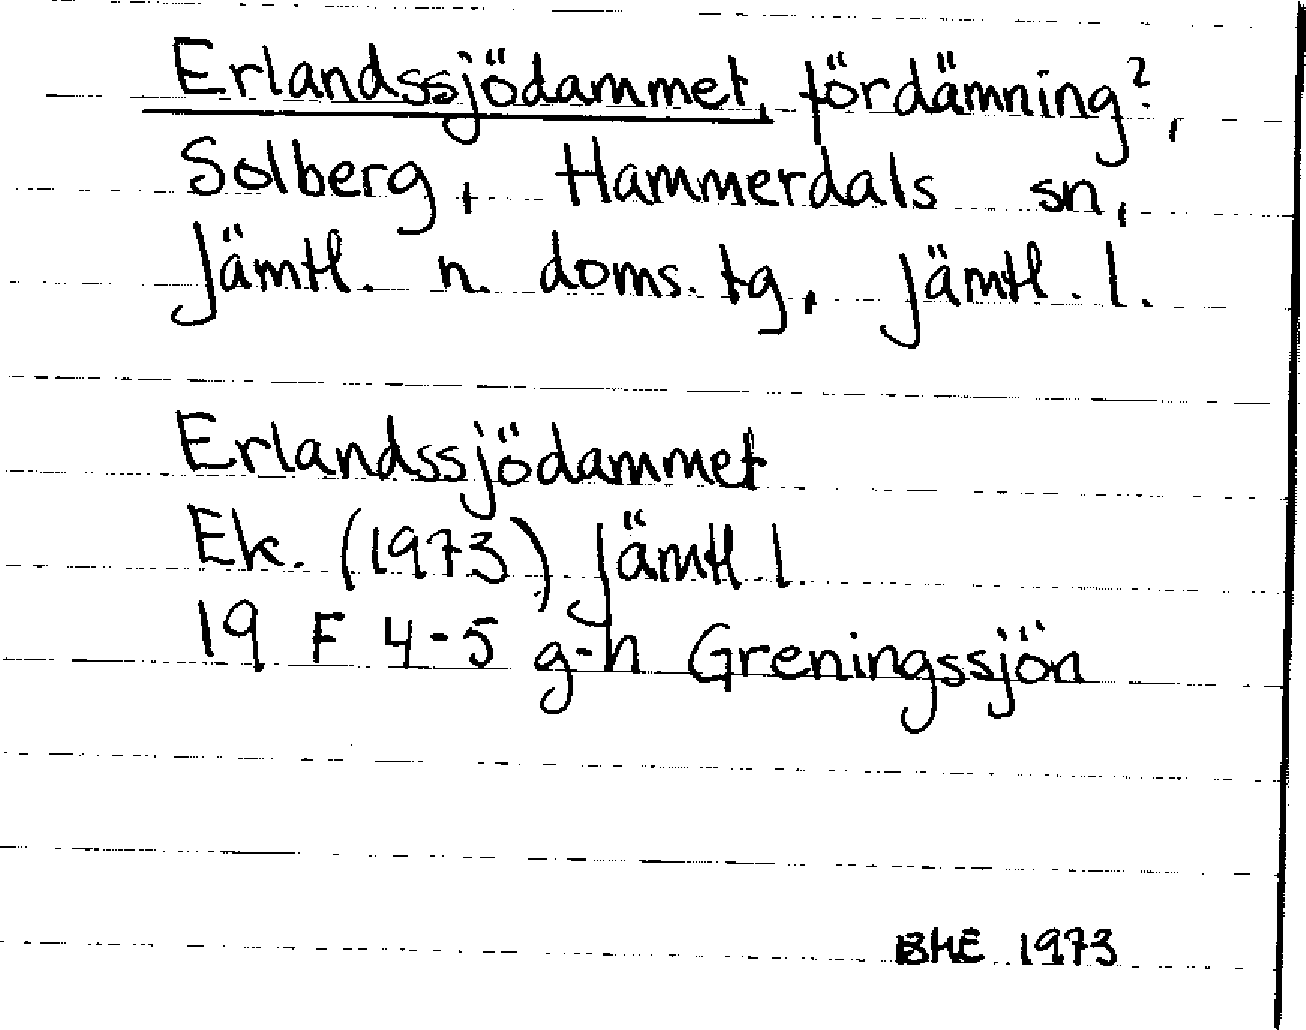 Erlandssjödammet, fördämning?,
Solberg, Hammerdals sn,
Jämtl. n. doms. tg, Jämtl. l.
Erlandssjödammet
Ek. (1973) Jämtl l.
19 F 4-5 g-h Greningssjön
BHE 1973